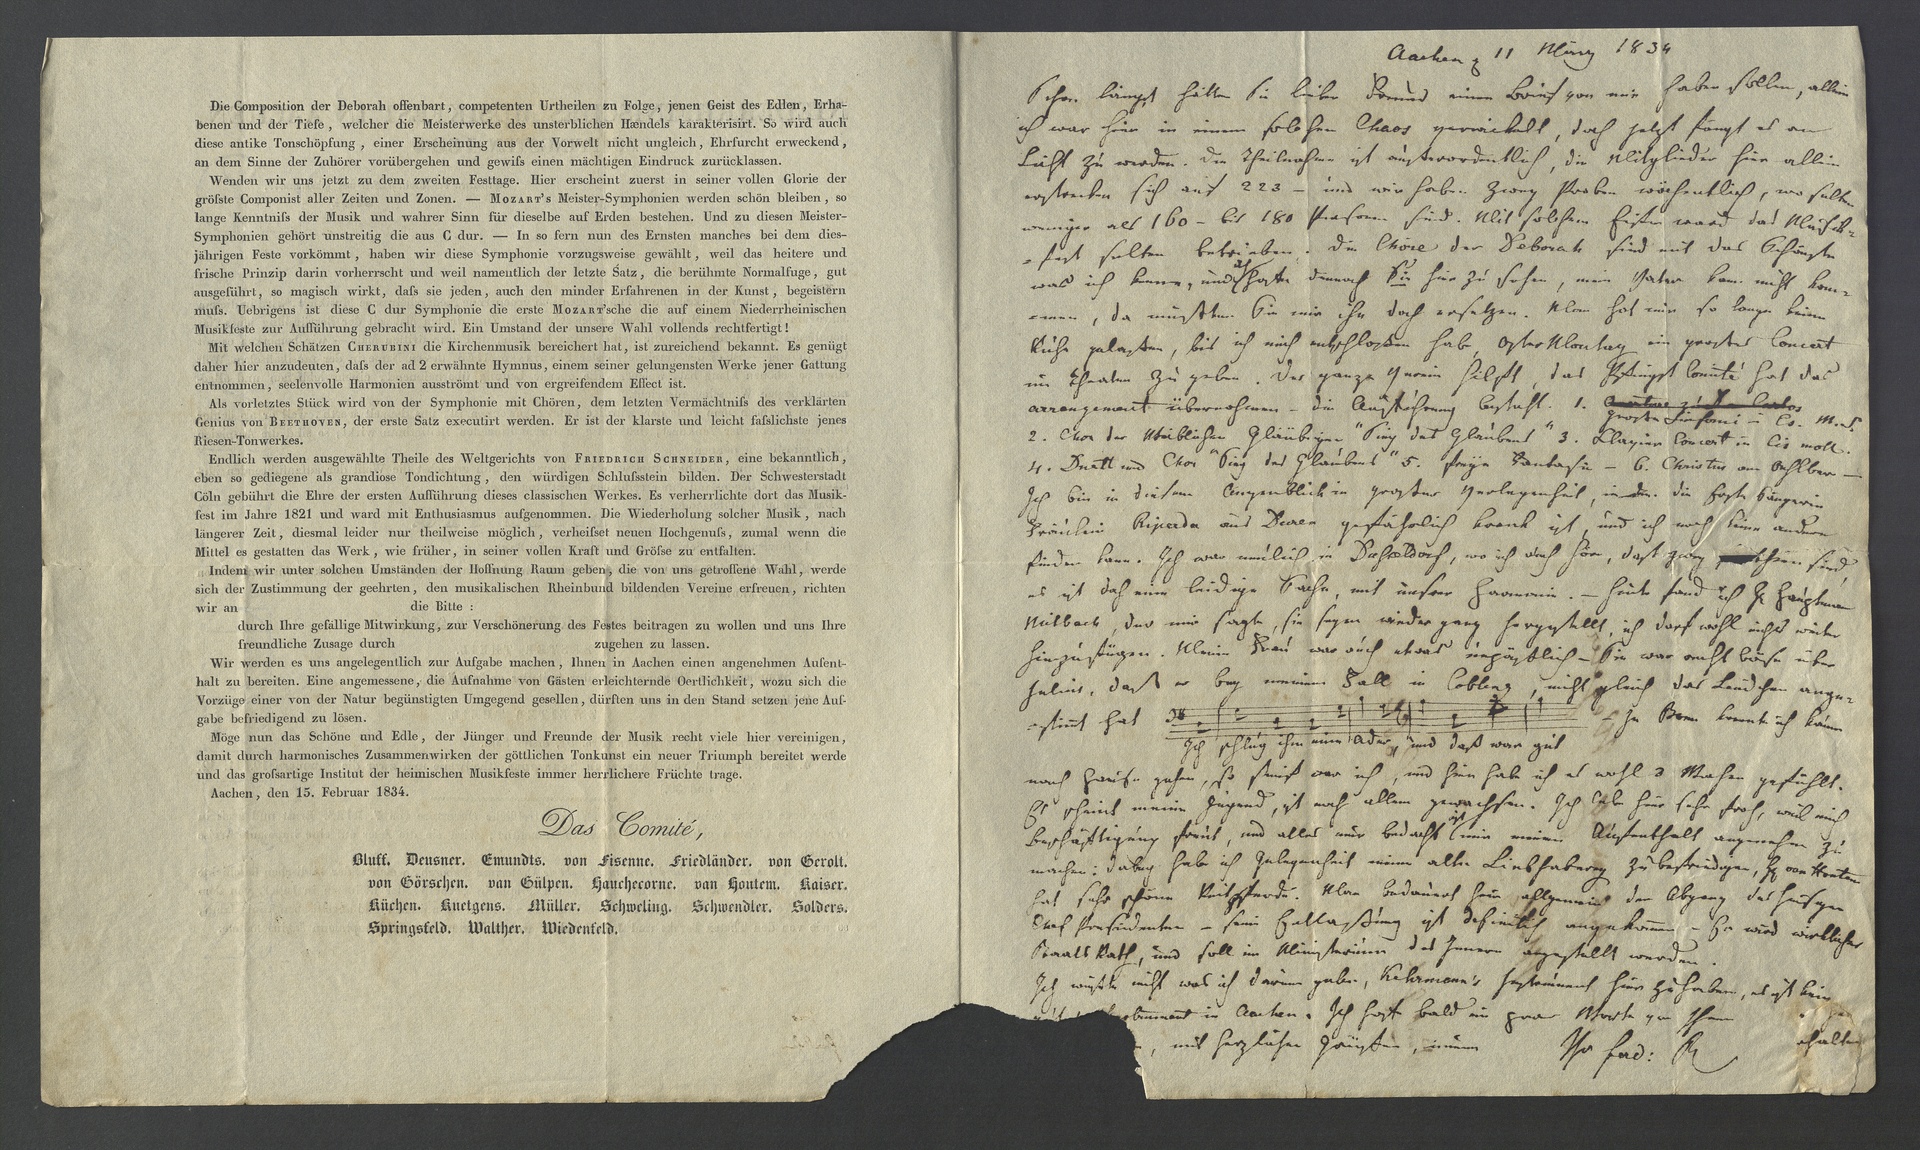 Die Composition der Deborah offenbart, competenten Urtheilen zu Folge, jenen Geist des Edlen, Erha-
benen und der Tiefe, welcher die Meisterwerke des unsterblichen Hændels karakterisirt. So wird auch
diese antike Tonschöpfung, einer Erscheinung aus der Vorwelt nicht ungleich, Ehrfurcht erweckend,
an dem Sinne der Zuhörer vorübergehen und gewifs einen mächtigen Eindruck zurücklassen.
Wenden wir uns jetzt zu dem zweiten Festtage. Hier erscheint zuerst in seiner vollen Glorie der
gröfste Componist aller Zeiten und Zonen. — MOZART's Meister-Symphonien werden schön bleiben, so
lange Kenntnifs der Musik und wahrer Sinn für dieselbe auf Erden bestehen. Und zu diesen Meister-
Symphonien gehört unstreitig die aus C dur. — In so fern nun des Ernsten manches bei dem dies-
jährigen Feste vorkömmt, haben wir diese Symphonie vorzugsweise gewählt, weil das heitere und
frische Prinzip darin vorherrscht und weil namentlich der letzte Satz, die berühmte Normalfuge, gut
ausgeführt, so magisch wirkt, dafs sie jeden, auch den minder Erfahrenen in der Kunst, begeistern
mufs. Uebrigens ist diese C dur Symphonie die erste MOZART'sche die auf einem Niederrheinischen
Musikfeste zur Aufführung gebracht wird. Ein Umstand der unsere Wahl vollends rechtfertigt!
Mit welchen Schätzen CHERUBINI die Kirchenmusik bereichert hat, ist zureichend bekannt. Es genügt
daher hier anzudeuten, dafs der ad 2 erwähnte Hymnus, einem seiner gelungensten Werke jener Gattung
entnommen, seelenvolle Harmonien ausströmt und von ergreifendem Effect ist.
Als vorletztes Stück wird von der Symphonie mit Chören, dem letzten Vermächtnifs des verklärten
Genius von BEETHOVEN, der erste Satz executirt werden. Er ist der klarste und leicht fafslichste jenes
Riesen-Tonwerkes.
Endlich werden ausgewählte Theile des Weltgerichts von FRIEDRICH SCHNEIDER, eine bekanntlich,
eben so gediegene als grandiose Tondichtung, den würdigen Schlufsstein bilden. Der Schwesterstadt
Cöln gebührt die Ehre der ersten Aufführung dieses classischen Werkes. Es verherrlichte dort das Musik-
fest im Jahre 1821 und ward mit Enthusiasmus aufgenommen. Die Wiederholung solcher Musik, nach
längerer Zeit, diesmal leider nur theilweise möglich, verheifset neuen Hochgenufs, zumal wenn die
Mittel es gestatten das Werk, wie früher, in seiner vollen Kraft und Gröfse zu entfalten.
Indem wir unter solchen Umständen der Hoffnung Raum geben, die von uns getroffene Wahl, werde
sich der Zustimmung der geehrten, den musikalischen Rheinbund bildenden Vereine erfreuen, richten
wir an die Bitte :
durch Ihre gefällige Mitwirkung, zur Verschönerung des Festes beitragen zu wollen und uns Ihre
freundliche Zusage durch zugehen zu lassen.
Wir werden es uns angelegentlich zur Aufgabe machen, Ihnen in Aachen einen angenehmen Aufent-
halt zu bereiten. Eine angemessene, die Aufnahme von Gästen erleichternde Oertlichkeit, wozu sich die
Vorzüge einer von der Natur begünstigten Umgegend gesellen, dürften uns in den Stand setzen jene Auf-
gabe befriedigend zu lösen.
Möge nun das Schöne und Edle, der Jünger und Freunde der Musik recht viele hier vereinigen,
damit durch harmonisches Zusammenwirken der göttlichen Tonkunst ein neuer Triumph bereitet werde
und das grofsartige Institut der heimischen Musikfeste immer herrlichere Früchte trage.
Aachen, den 15. Februar 1834.
Das Comité,
Bluff. Deusner. Emundts. von Fisenne. Friedländer. von Gerolt.
von Görschen. van Gülpen. Hauchecorne. van Houtem. Kaiser.
Küchen. Knetgens. Müller. Schweling. Schwendler. Solders.
Springsfeld. Walther. Wiedenfeld.
Aachen 11 März 1834
Schon längst hätten Sie lieber Freund einen Brief von mir haben sollen, allein
ich war hier in einem solchen Chaos verwickelt, doch jetzt fängt es an
Licht zu werden. Die Theilnahme ist außerordentlich, die Mitglieder hier allein
erstrecken sich auf 223 – und wir haben zwey Proben wöchentlich, wo selten
weniger als 160 – bis 180 Personen sind. Mit solchem Eifer ward das Musik-
-fest selten betrieben. Die Chöre der Deborah sind mit das Schönste
was ich kenne, und ich hoffe dennoch Sie hier zu sehen, mein Vater kann nicht kom-
-men, da müßten Sie mir ihn doch ersetzen. Man hat mir so lange keine
Ruhe gelassen, bis ich mich entschloßen habe, OsterMontag ein großes Concert
im Theater zu geben. Der ganze Verein hilft, das Pfingst Comité hat das
arrangement übernohmen – die Aufführung besteht. 1.
große Sinfonie in Es.
2. Chor der Weiblichen Gläubigen "Sieg des Glaubens" 3. Klavier Concert in Cis moll.
4. Duett und Chor "Sieg des Glaubens" 5. freye Fantasie – 6. Christus am Oehlberg —
Ich bin in diesem Augenblick in großer Verlegenheit, die Erste Sängerin
Fräulein aus Dueren gefährlich krank ist, und ich noch keine andere
finden kann. Ich war neulich in Düsseldorf, wo ich auch höre, daß zwey sind,
es ist doch eine leidige Sache, mit unsrer Harmonie. – Heute fand ich H Hauptmann
der mir sagte, sie seyen wieder ganz hergestellt, ich darf wohl nichts weiter
hinzufügen. Meine Frau war auch etwas unpäßlich – Sie war recht böse über
Julius, daß er bey meinem Fall in Coblenz, nicht gleich das Liedchen ange-
-stimmt hat – In Bonn konnte ich kaum
Ich schlug ihm eine Ader, und daß war gut
nach Hause gehen, so steif war ich, und hier habe ich es wohl 3 Wochen gefühlt.
Es scheint meine Jugend, ist noch allem gewachsen. Ich lebe hier sehr froh, weil mich
Beschäftigung freut, und alles nur bedacht ist mir meinen Aufenthalt angenehm zu
machen; dabey habe ich Gelegenheit meine alte Liebhaberey zu befriedigen, H van Houtem
hat sehr schöne Reitpferde. Man bedauert hier allgemein den Abgang des hiesigen
Chef Präsidenten – seine Entlaßung ist definitiv angekommen – Er wird wirklicher
Staats Rath, und soll im Ministerium des Innern angestellt werden.
Ich wüßte nicht was ich darum gäbe, Instrument hier zu haben, es ist kein
in Aachen. Ich hoffe bald ein paar Worte von Ihnen
, mit herzlichen Grüßen, Ihr Ferd: R